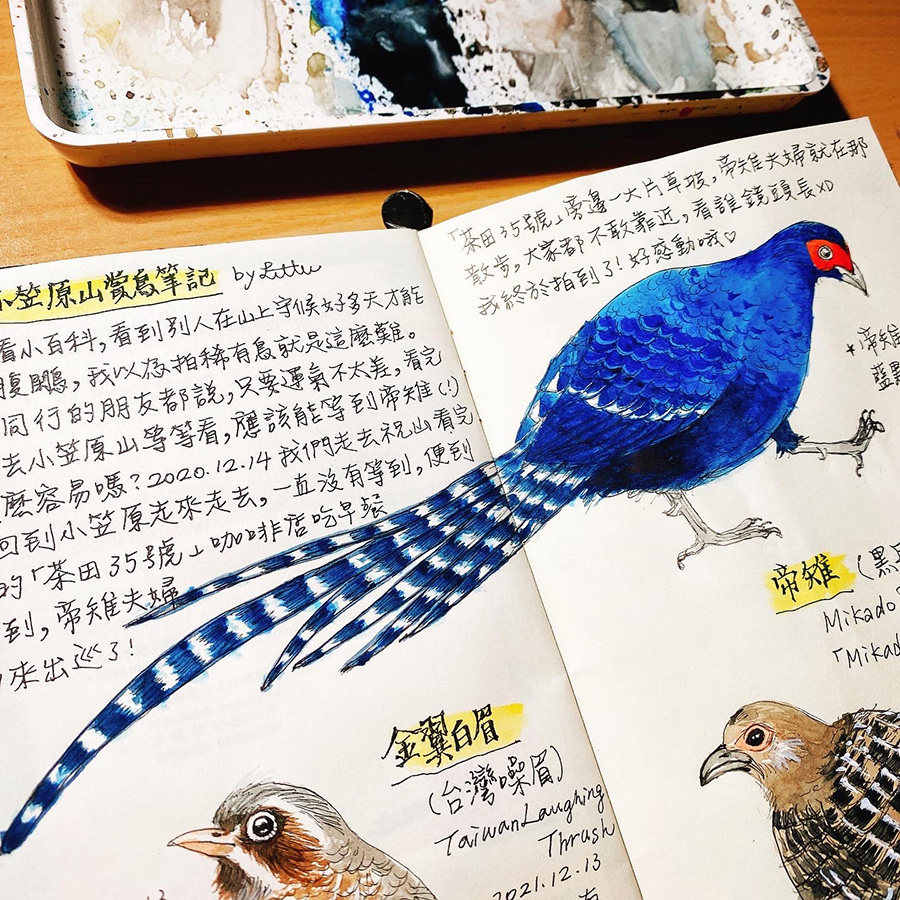 小笠原山賞鳥筆記 by
看小百科，看到別人在山上守候好多天才能
我以為拍稀有鳥就是這麼難。
同行的朋友都說，只要運氣不太差，看完
去小笠原山等等看，應該能等到帝雉(!)
麼容易嗎？2020.12.14 我們走去祝山看完
回到小笠原走來走去，一直沒有等到，便到
的「茶田35號」咖啡店吃早餐
到，帝雉夫婦
來出巡了！
「茶田35號」旁邊一大片草坡，帝雉夫婦就在那
散步，大家都不敢靠近，看誰鏡頭長XD
我終於拍到了！好感動哦♡
*帝雉
藍
帝雉 (黑
Mikado
「Mikad
金翼白眉
(台灣噪眉)
Taiwan Laughing
Thrush
2021.12.13